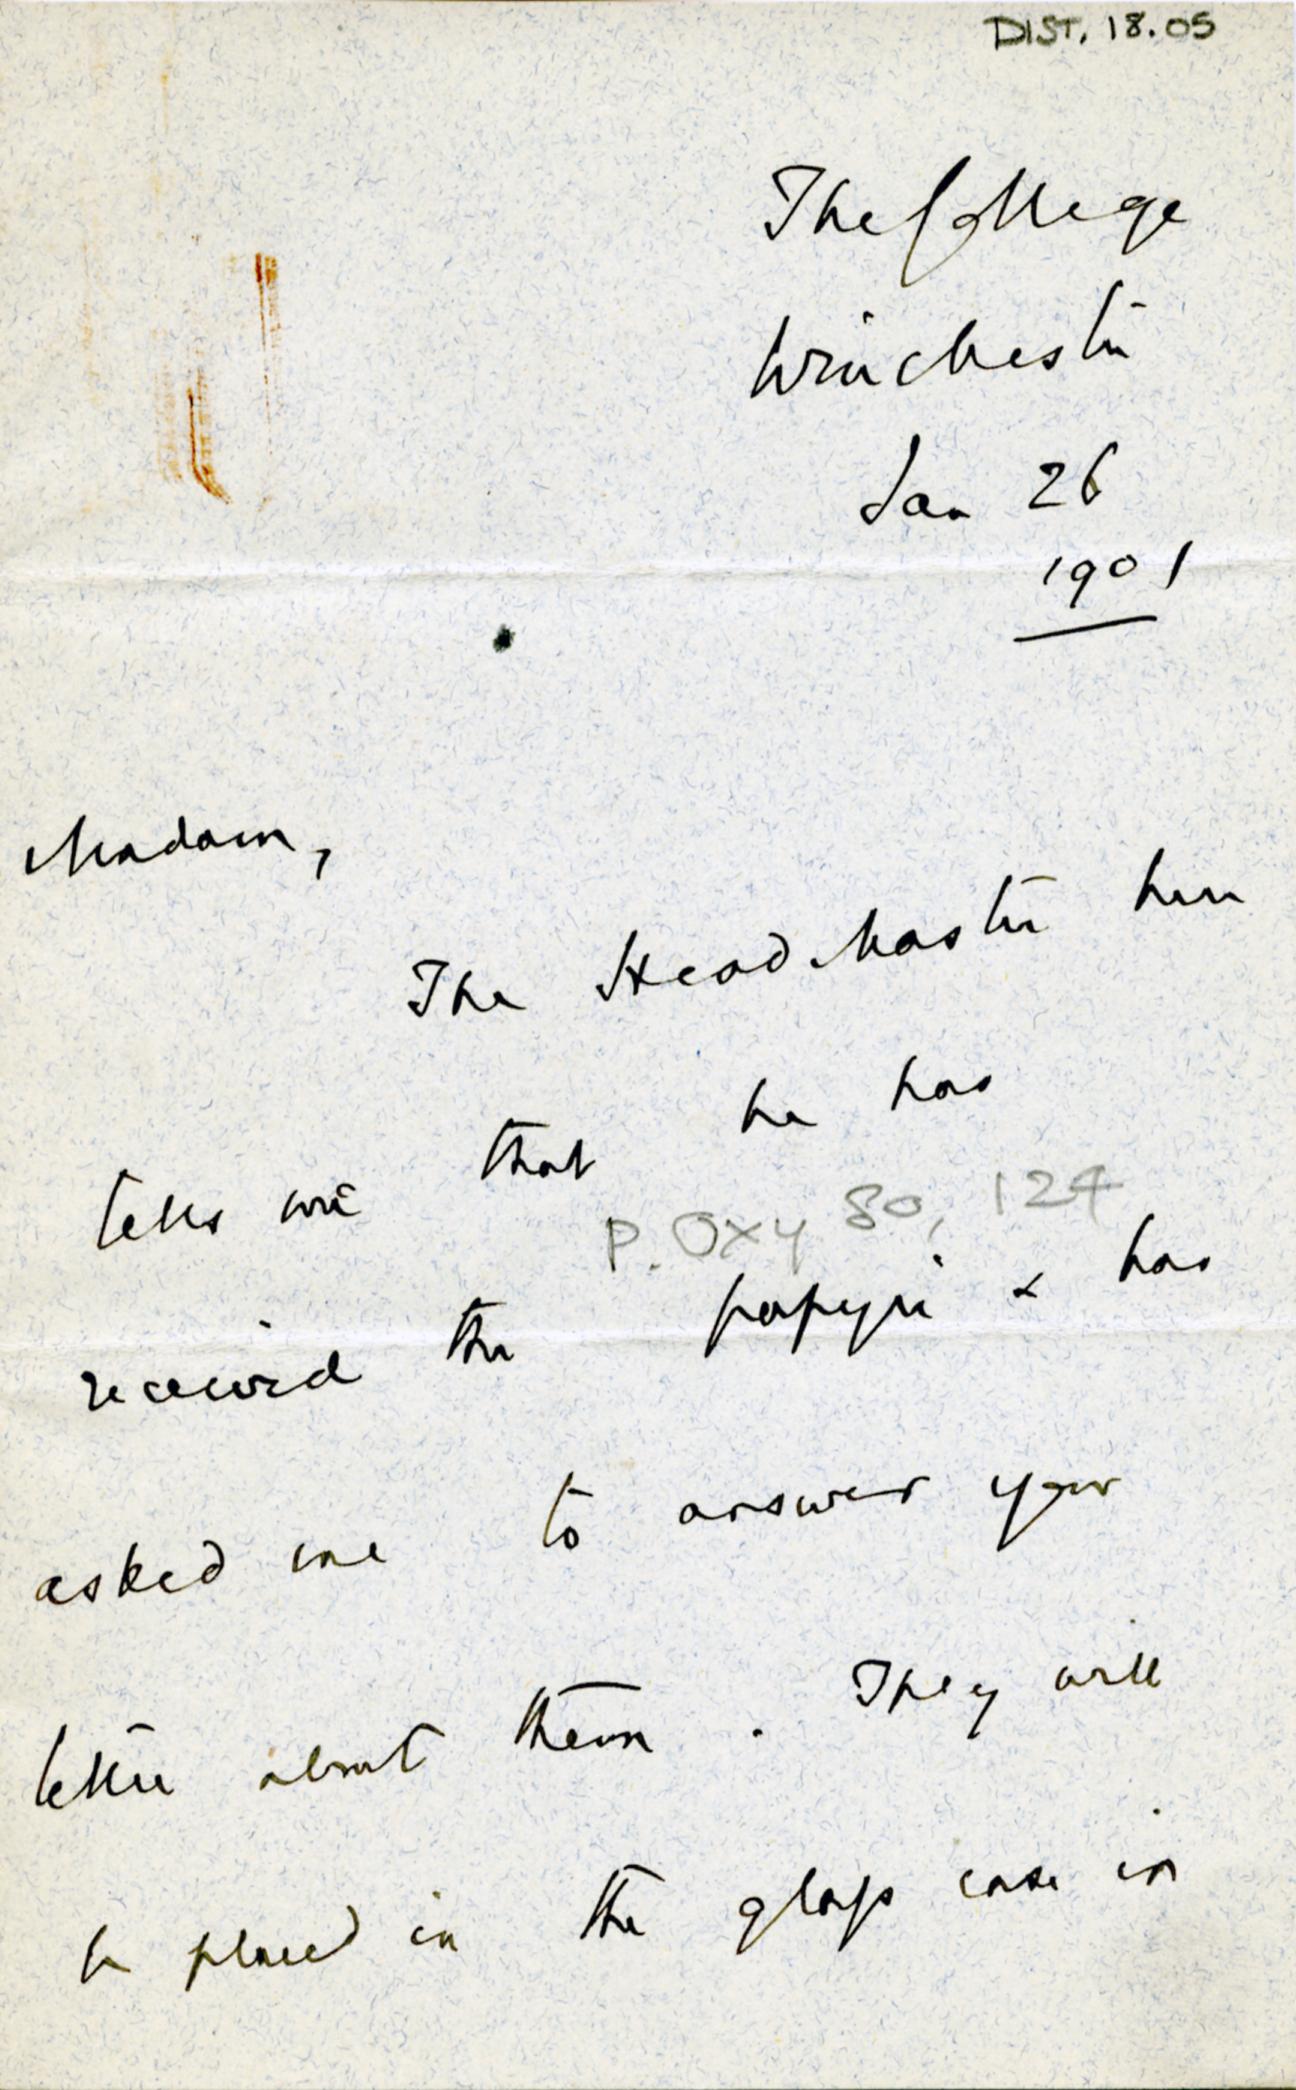 DIST. 18.05
The College
Winchester
Jan 26
1901
Madam,
The Head Master here
tells me that he has
P. Oxy 80, 124
received the papyri & has
asked me to answer your
letter about them. They will
be placed in the glass case in